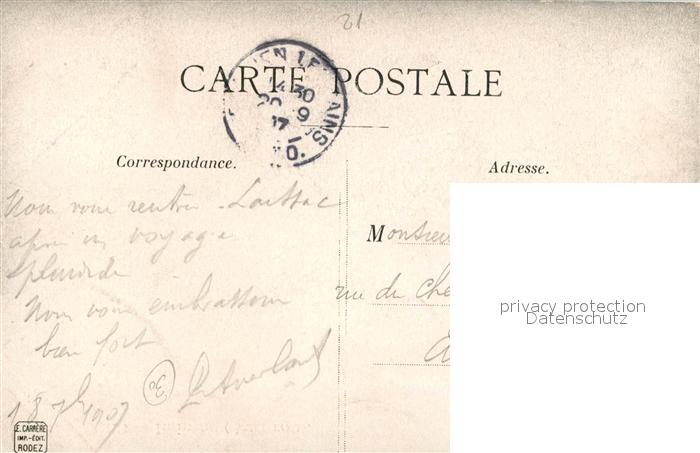 21
CARTE POSTALE
EN LES BAINS
14 30
20 9
07
Correspondance.
Adresse.
Nous vous
après un voyage
splendide
Nous vous embrassons
bien fort
30
18 7bre 1907
Monsieur
rue du Che
E. CARRÈRE
IMP.-ÉDIT.
RODEZ
privacy protection
Datenschutz